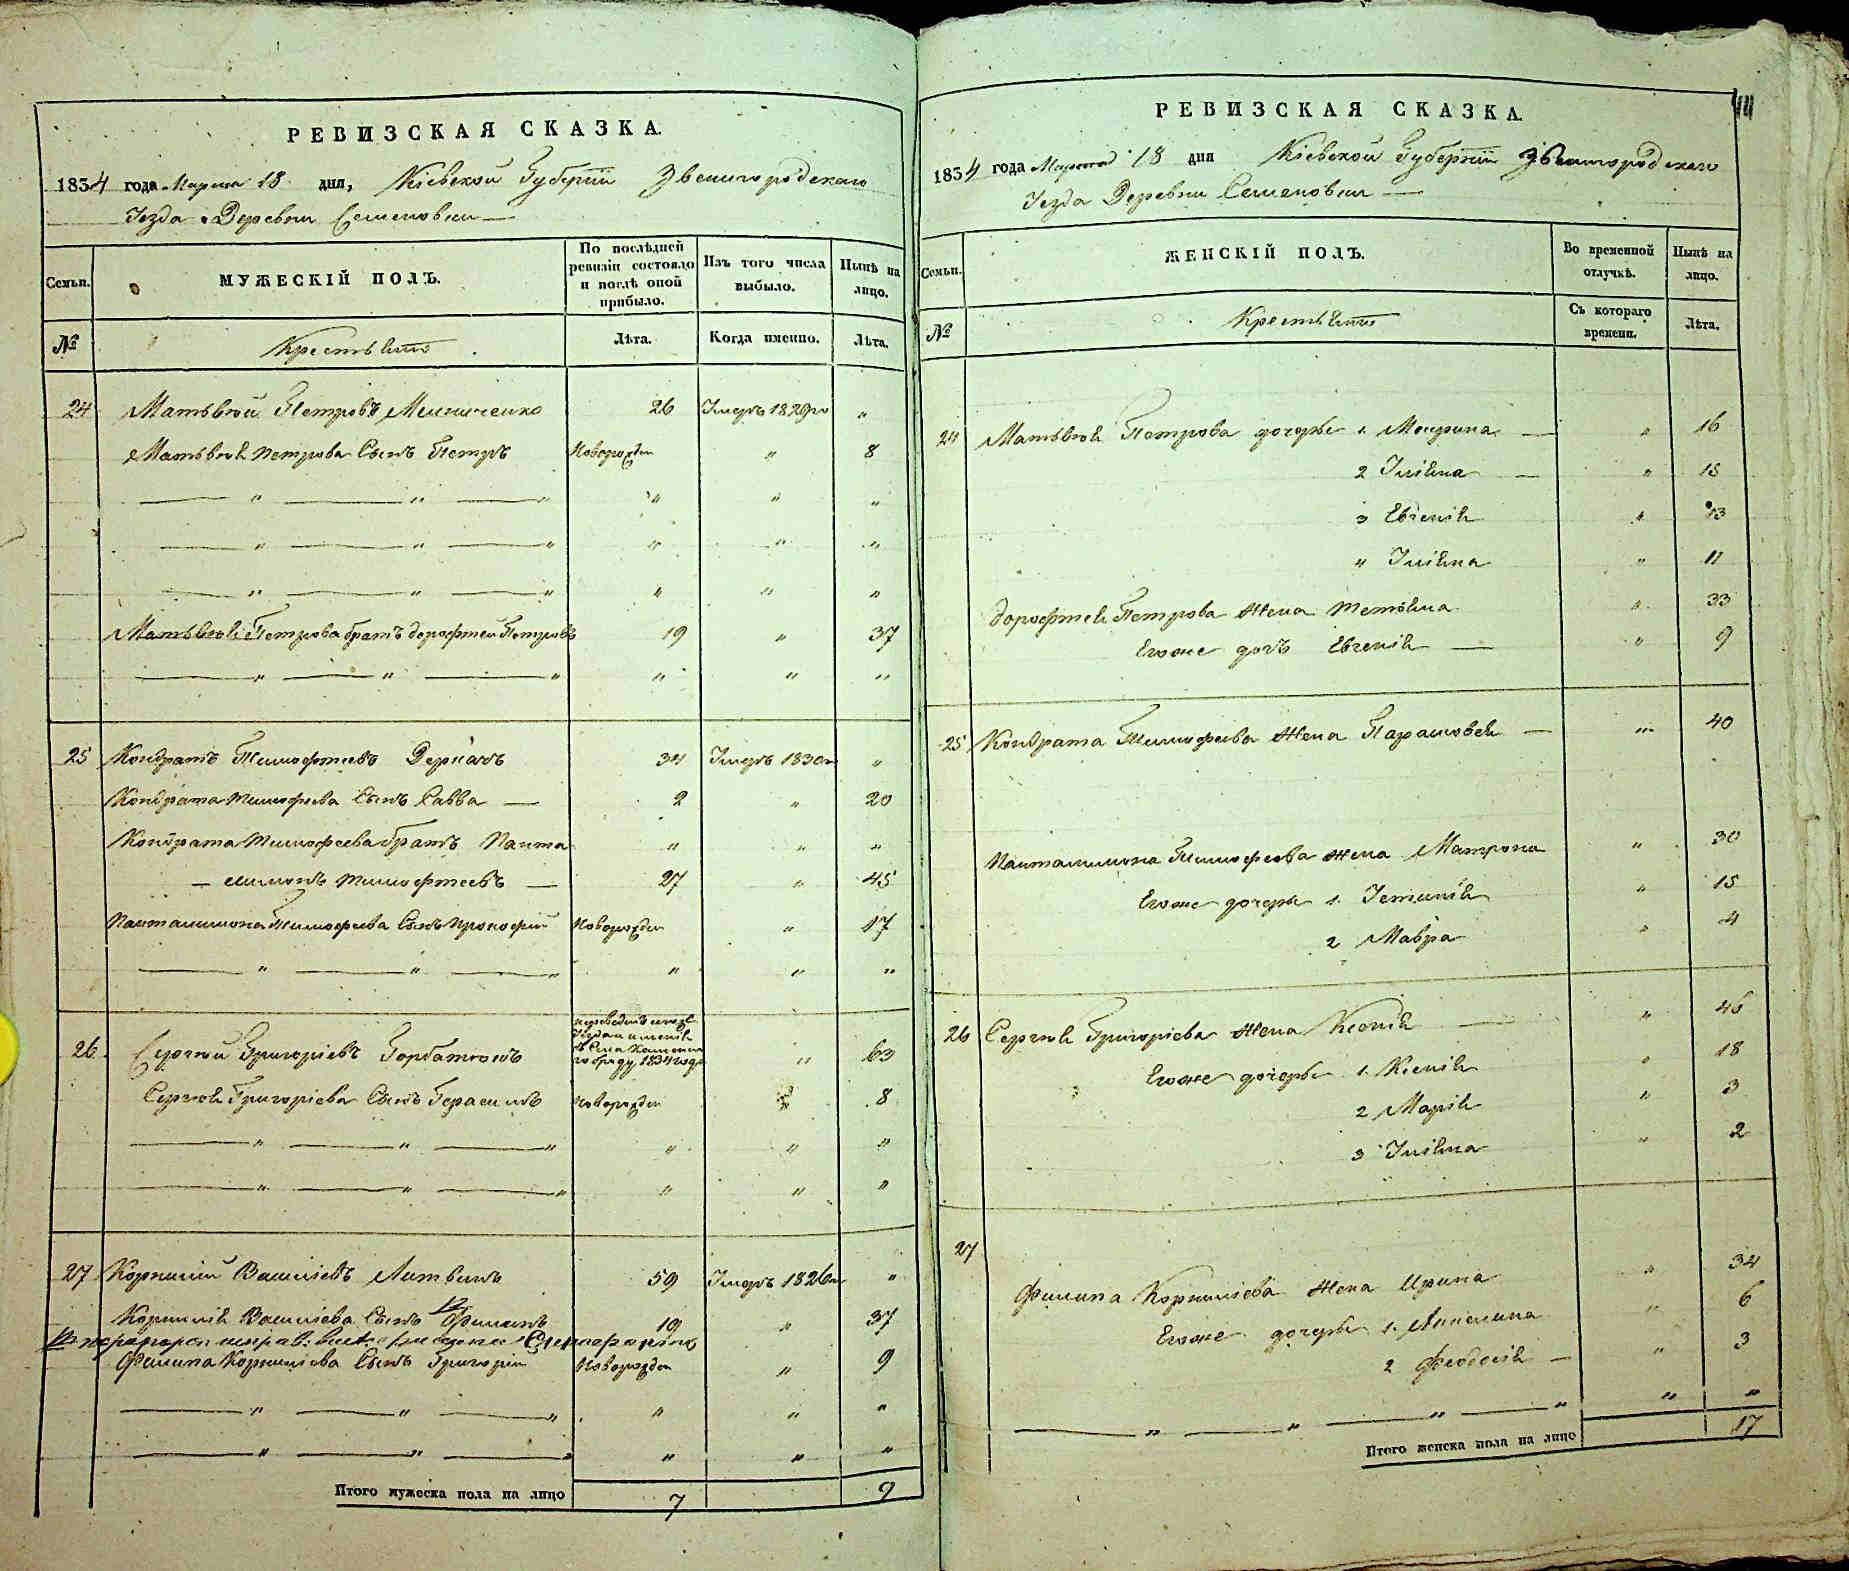 РЕВИЗСКАЯ СКАЗКА.
1834 года Марта 18 дня, Кіевской Губерніи Звенигородскаго
Уезда Деревни Семеновки
Семьи. МУЖЕСКІЙ ПОЛЪ. По послѣдней ревизіи состояло и послѣ оной прибыло. Изъ того числа выбыло. Нынѣ на лицо.
№ Крестьяне Лѣта. Когда именно. Лѣта.
24 Матьвѣй Петровъ 26 Умеръ 1829го "
Матьвѣя Петрова Сынъ Петръ Новорожден " 8
" " " " " "
" " " " " "
" " " " " "
Матьвѣя Петрова братъ дорофтей Петровъ 19 " 37
" " " " " "
25 Кондратъ Тимофтеевъ 34 Умеръ 1830го "
Кондрата Тимофеева Сынъ Савва 2 " 20
Кондрата Тимофеева братъ Панта " " "
лимонъ Тимофтеевъ 27 " 45
Панталимона Тимофеева Сынъ Прокофій Новорожден " 17
" " " " " "
26 Сергѣй Григоріевъ Горбатюкъ 1834 года " 63
Сергѣя Григоріева Сынъ Герасимъ Новорожден " 8
" " " " " "
" " " " " "
27 Корнилій Василіевъ Литвинъ 59 Умеръ 1826го "
Корнилія Василіева Сынъ Филипъ 19 " 37
Филипа Корниліева Сынъ Григорій Новорожден " 9
" " " " " "
" " " " " "
Итого мужеска пола на лицо 7 9
РЕВИЗСКАЯ СКАЗКА.
1834 года Марта 18 дня Кіевской Губерніи Звенигородскаго
Уезда Деревни Семеновки
Семьи. ЖЕНСКІЙ ПОЛЪ. Во временной отлучкѣ. Нынѣ на лицо.
№ Крестьяне Съ котораго времени. Лѣта.
24 Матьвѣя Петрова дочерѣ 1. " 16
2 Уліяна " 15
3 Евгенія " 13
4 Уліяна " 11
дорофтея Петрова жена Тетяна " 33
Егоже дочь Евгенія " 9
25 Кондрата Тимофеева жена Парасковея " 40
Панталимона Тимофеева жена Матрона " 30
Егоже дочерѣ 1. " 15
2 Мавра " 4
26 Сергѣя Григоріева жена Ксенія " 46
Егоже дочерѣ 1. Ксенія " 18
2 Марія " 3
3 Уліяна " 2
27
Филипа Корниліева жена Ирина " 34
Егоже дочерѣ 1. " 6
2 Феодосія " 3
" " " " " "
Итого женска пола на лицо 17